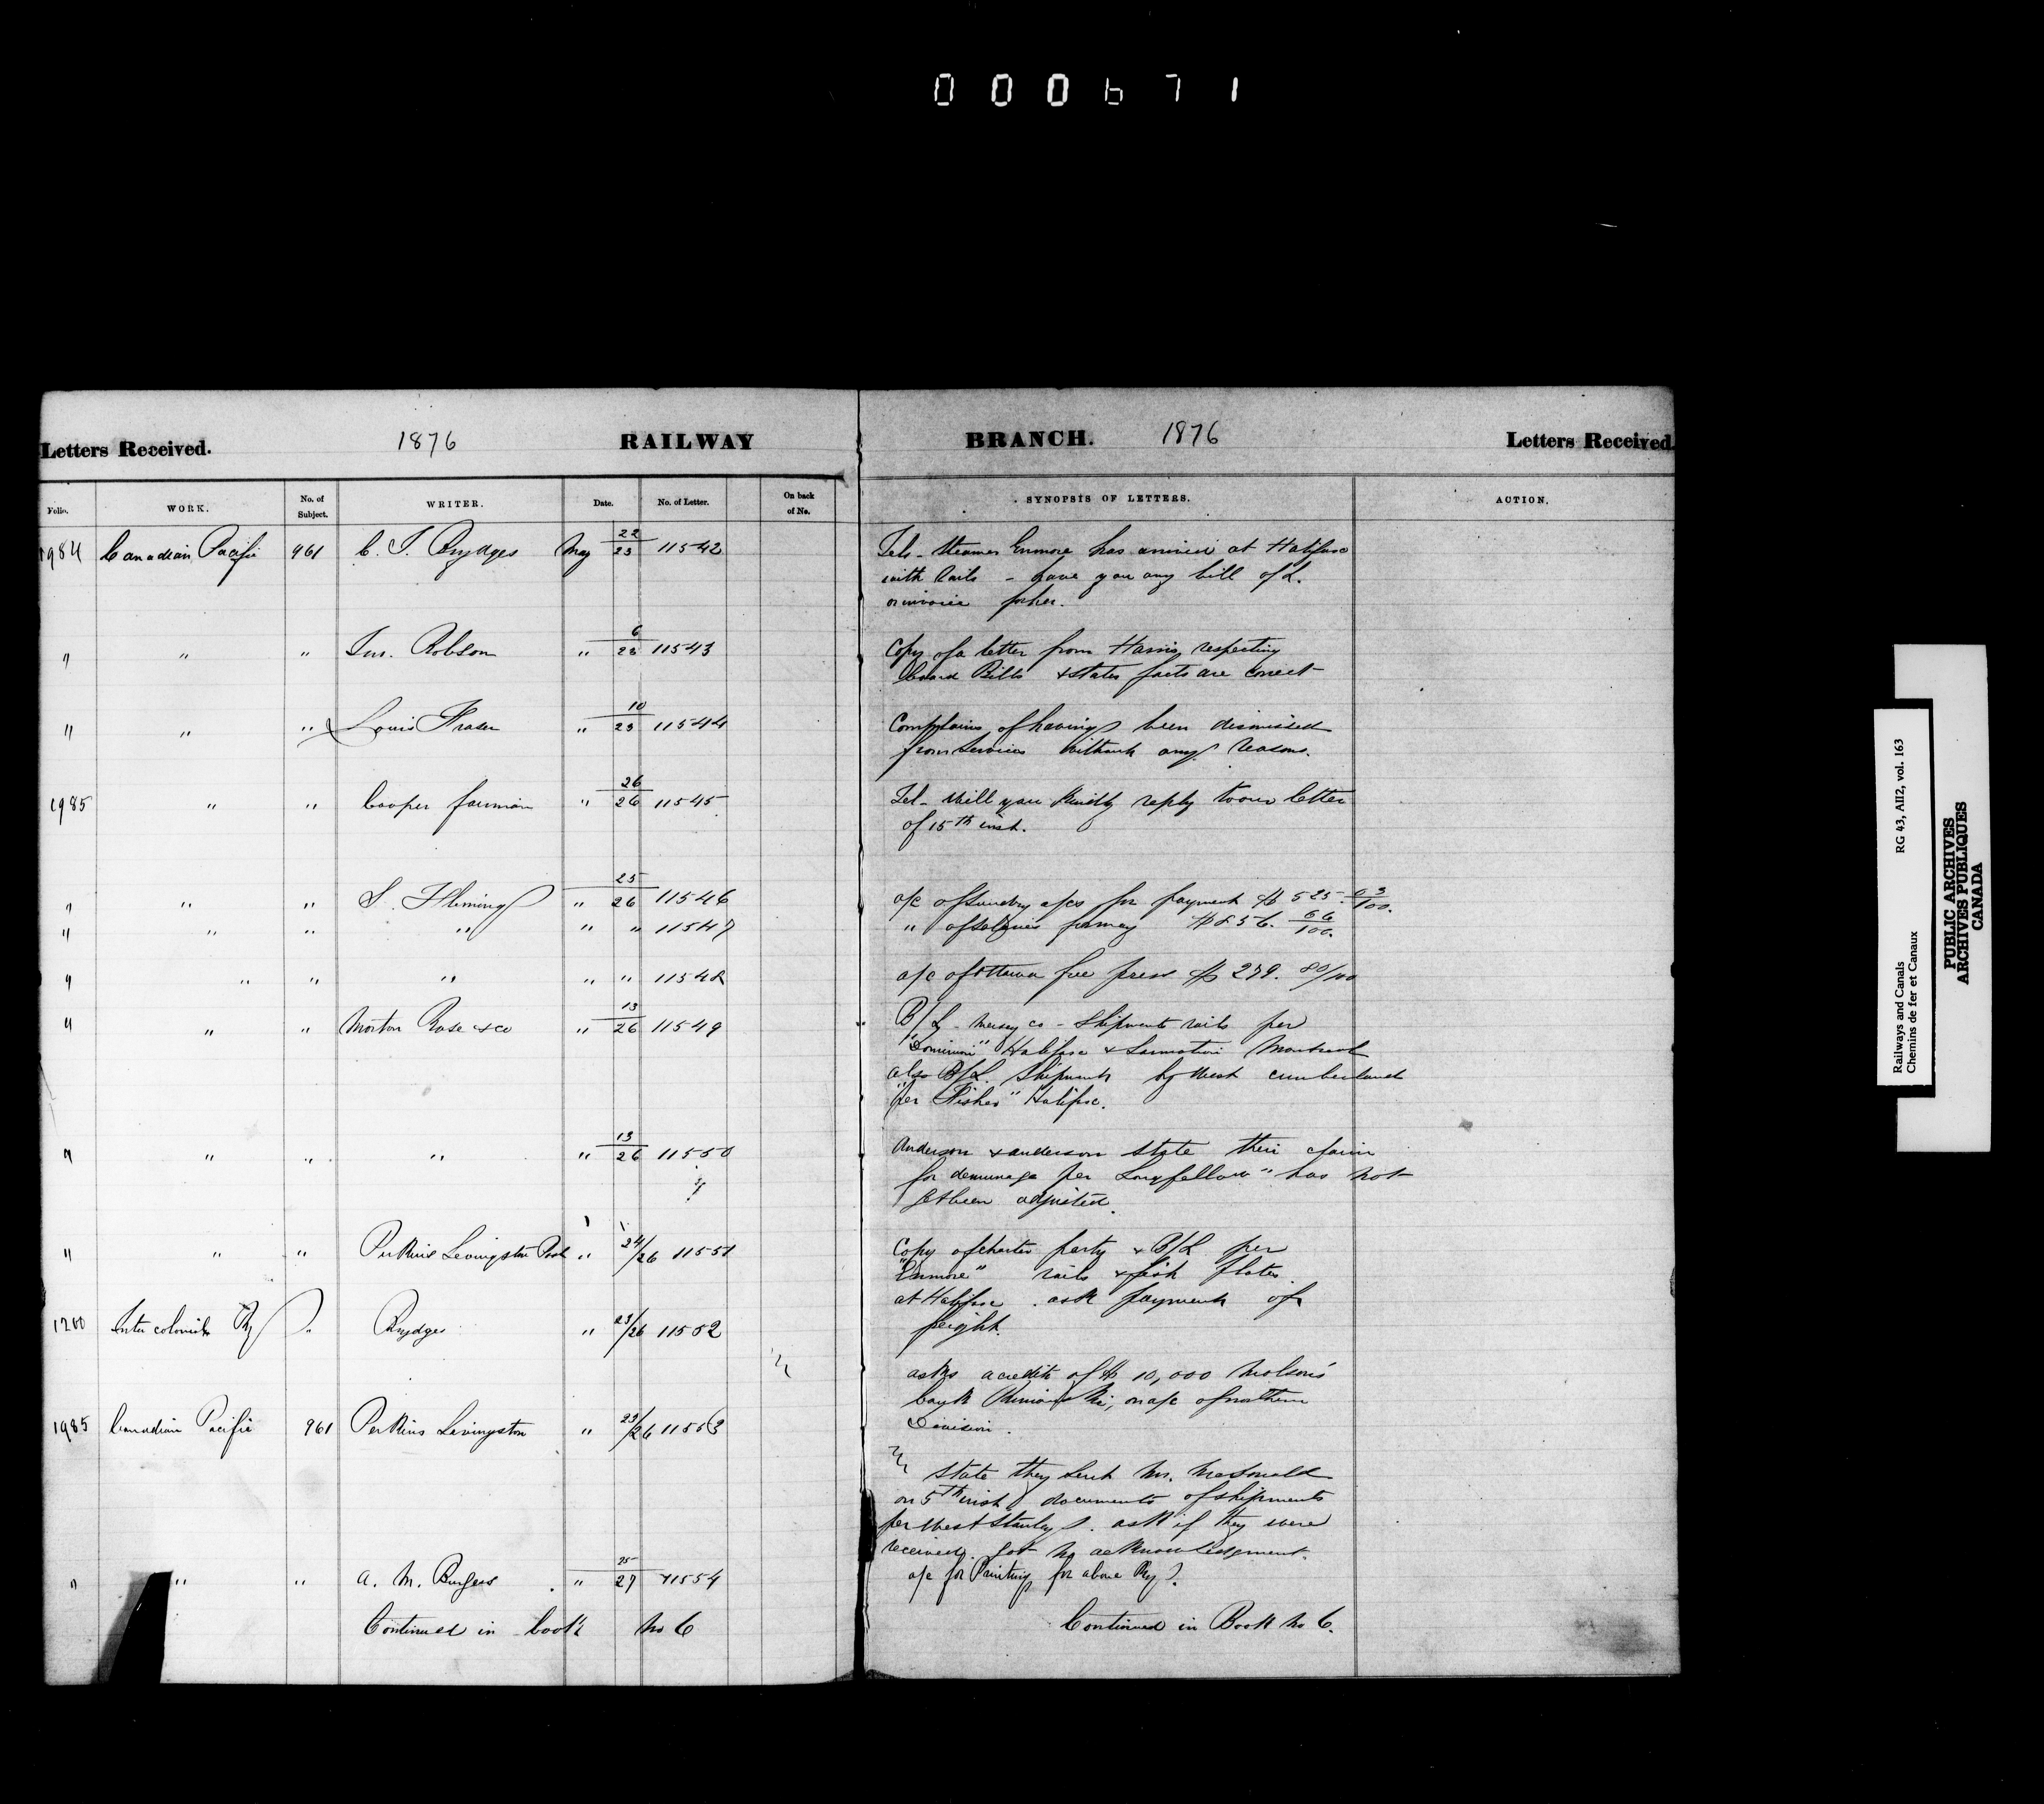 000671
Letters Received. 1876 RAILWAY BRANCH. 1876 Letters Received.
Folio. WORK. No. of Subject. WRITER. Date. No. of Letter. On back of No. SYNOPSIS OF LETTERS. ACTION.
1984 Canadian Pacific 961 C. J. Brydges May 22/23 11542 Tel- Steamer Enmore has arrived at Halifax
with rails - have you any bill of L.
or invoice for her.
" " " Jno. Robson " 6/23 11543 Copy of a letter from Harris respecting
board Bills & states facts are correct
" " " Louis Fraser " 10/23 11544 Complains of having been dismissed
from Services without any reasons.
1985 " " Cooper Fairman " 26/26 11545 Tel- Will you kindly reply to our letter
of 15th inst.
" " " S. Fleming " 25/26 11546 a/c of sundry a/cs for payment $ 525. 03/100.
" " " " " " 11547 " of salaries for may $ 856. 66/100.
" " " " " " 11548 a/c of Ottawa free press $ 279. 80/100
" " " Morton Rose & co " 13/26 11549 B/L - Mersey co - Shipments rails per
"Dominion" Halifax & Sarmatian Montreal
also B/L. Shipments by West cumberland
per " " Halifax.
" " " " " 13/26 11550 Anderson & anderson state their claim
for demurrage per Longfellow" has not
yet been adjusted.
" " " Perkins Livingston Post " 24/26 11551 Copy of charter party & B/L per
"Enmore" rails & fish plates
at Halifax. ask payment of
freight.
1200 Intercolonial Ry " Brydges " 23/26 11552
asks a credit of $ 10,000 Molson's
bank Rimouski, on a/c of northern
Division.
1985 Canadian Pacific 961 Perkins Livingston " 23/26 11553
state they sent Mr. MacDonald
on 5th inst documents of shipments
per West Stanley. ask if they were
received. got no acknowledgment.
" " " A. M. Burgess " 25/27 11554 a/c for Printing for above Ry.
Continued in book no 6 Continued in Book no 6.
Railways and Canals RG 43, AII2, vol. 163
Chemins de fer et Canaux
PUBLIC ARCHIVES
ARCHIVES PUBLIQUES
CANADA